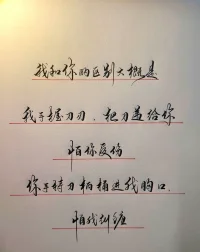 我和你的区别大概是
我手握刀刃，把刀盖给你
怕你受伤
你手持刀柄捅进我胸口，
怕我纠缠